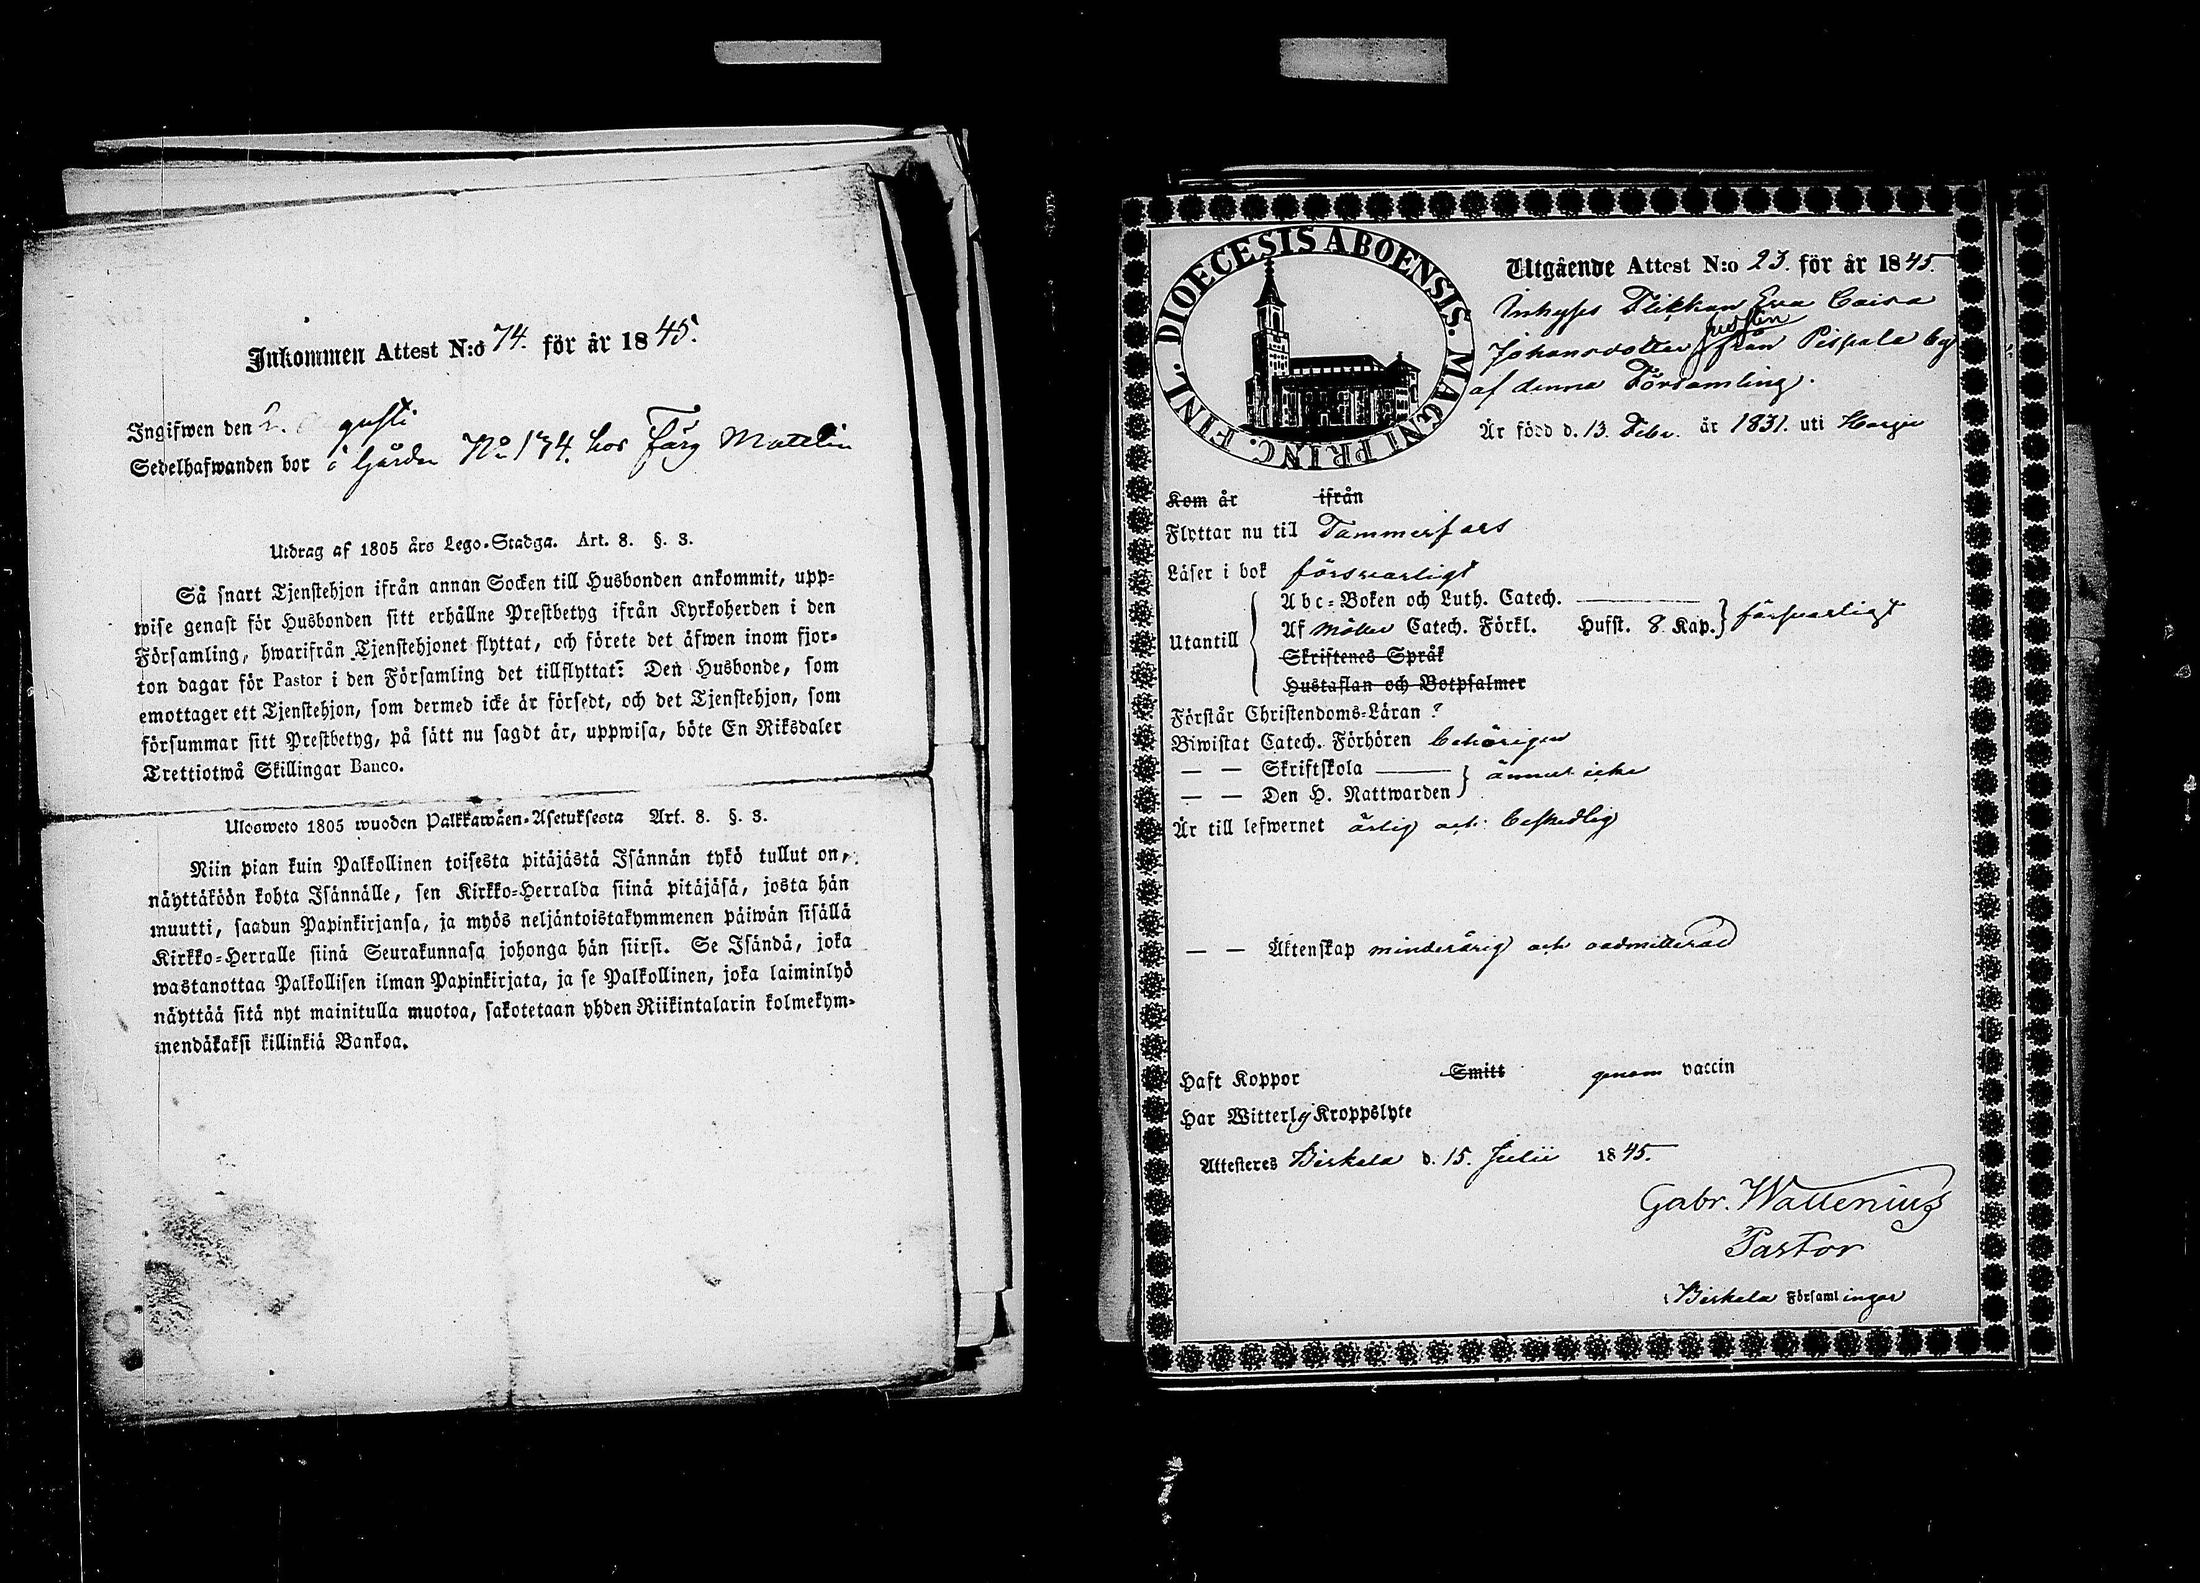 Inkommen Attest N:o 74. för år 1845.
Ingifwen den 2. gusti
Sedelhafwanden bor i Gården No 174. hos Färg Mattelin
Utdrag af 1805 års Lego-Stadga. Art. 8. §. 3.
Så snart Tjenstehjon ifrån annan Socken till Husbonden ankommit, upp-
wise genast för Husbonden sitt erhållne Prestbetyg ifrån Kyrkoherden i den
Församling, hwarifrån Tjenstehjonet flyttat, och förete det äfwen inom fjor-
ton dagar för Pastor i den Församling det tillflyttat: Den Husbonde, som
emottager ett Tjenstehjon, som dermed icke är försedt, och det Tjenstehjon, som
försummar sitt Prestbetyg, på sätt nu sagdt är, uppwisa, böte En Riksdaler
Trettiotwå Skillingar Banco.
Ulosweto 1805 wuoden Palkkawäen-Asetuksesta Art. 8. §. 3.
Niin pian kuin Palkollinen toisesta pitäjästä Isännän tykö tullut on,
näyttäköön kohta Isännälle, sen Kirkko-Herralda siinä pitäjäsä, josta hän
muutti, saadun Papinkirjansa, ja myös neljäntoistakymmenen päiwän sisällä
Kirkko-Herralle siinä Seurakunnasa johonga hän siirsi. Se Isändä, joka
wastanottaa Palkollisen ilman Papinkirjata, ja se Palkollinen, joka laiminlyö
näyttää sitä nyt mainitulla muotoa, sakotetaan yhden Riikintalarin kolmekym-
mendäkaksi killinkiä Bankoa.
DIOECESIS ABOENSIS. MAGNI PRINC. FINL.
Utgående Attest N:o 23. för år 1845.
Inhyses Flickan Eva Caisa
Johansdotter från Pispala by
af denna Församling.
Är född d. 13. Febr. år 1831. uti Harju
Kom år ifrån
Flyttar nu til Tammerfors
Läser i bok försvarligt
Utantill
Abc-Boken och Luth. Catech.
Af Möller Catech. Förkl. Hufst. 8 Kap. försvarligt
Skriftenes Språk
Hustaflan och Botpsalmer
Förstår Christendoms-Läran ?
Biwistat Catech. Förhören behörigen
— — Skriftskola
— — Den H. Nattwarden ännu icke
Är till lefwernet ärlig och beskedlig
— — Äktenskap minderårig och oadmitterad
Haft Koppor Smitt genom vaccin
Har Witterlig Kroppslyte
Attesteres Birkala d. 15. Julii 1845.
Gabr. Wallenius
Pastor
i Birkala Församlingar